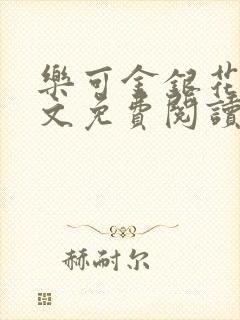 樂可金銀花
文免費閱讀
赫耐尔